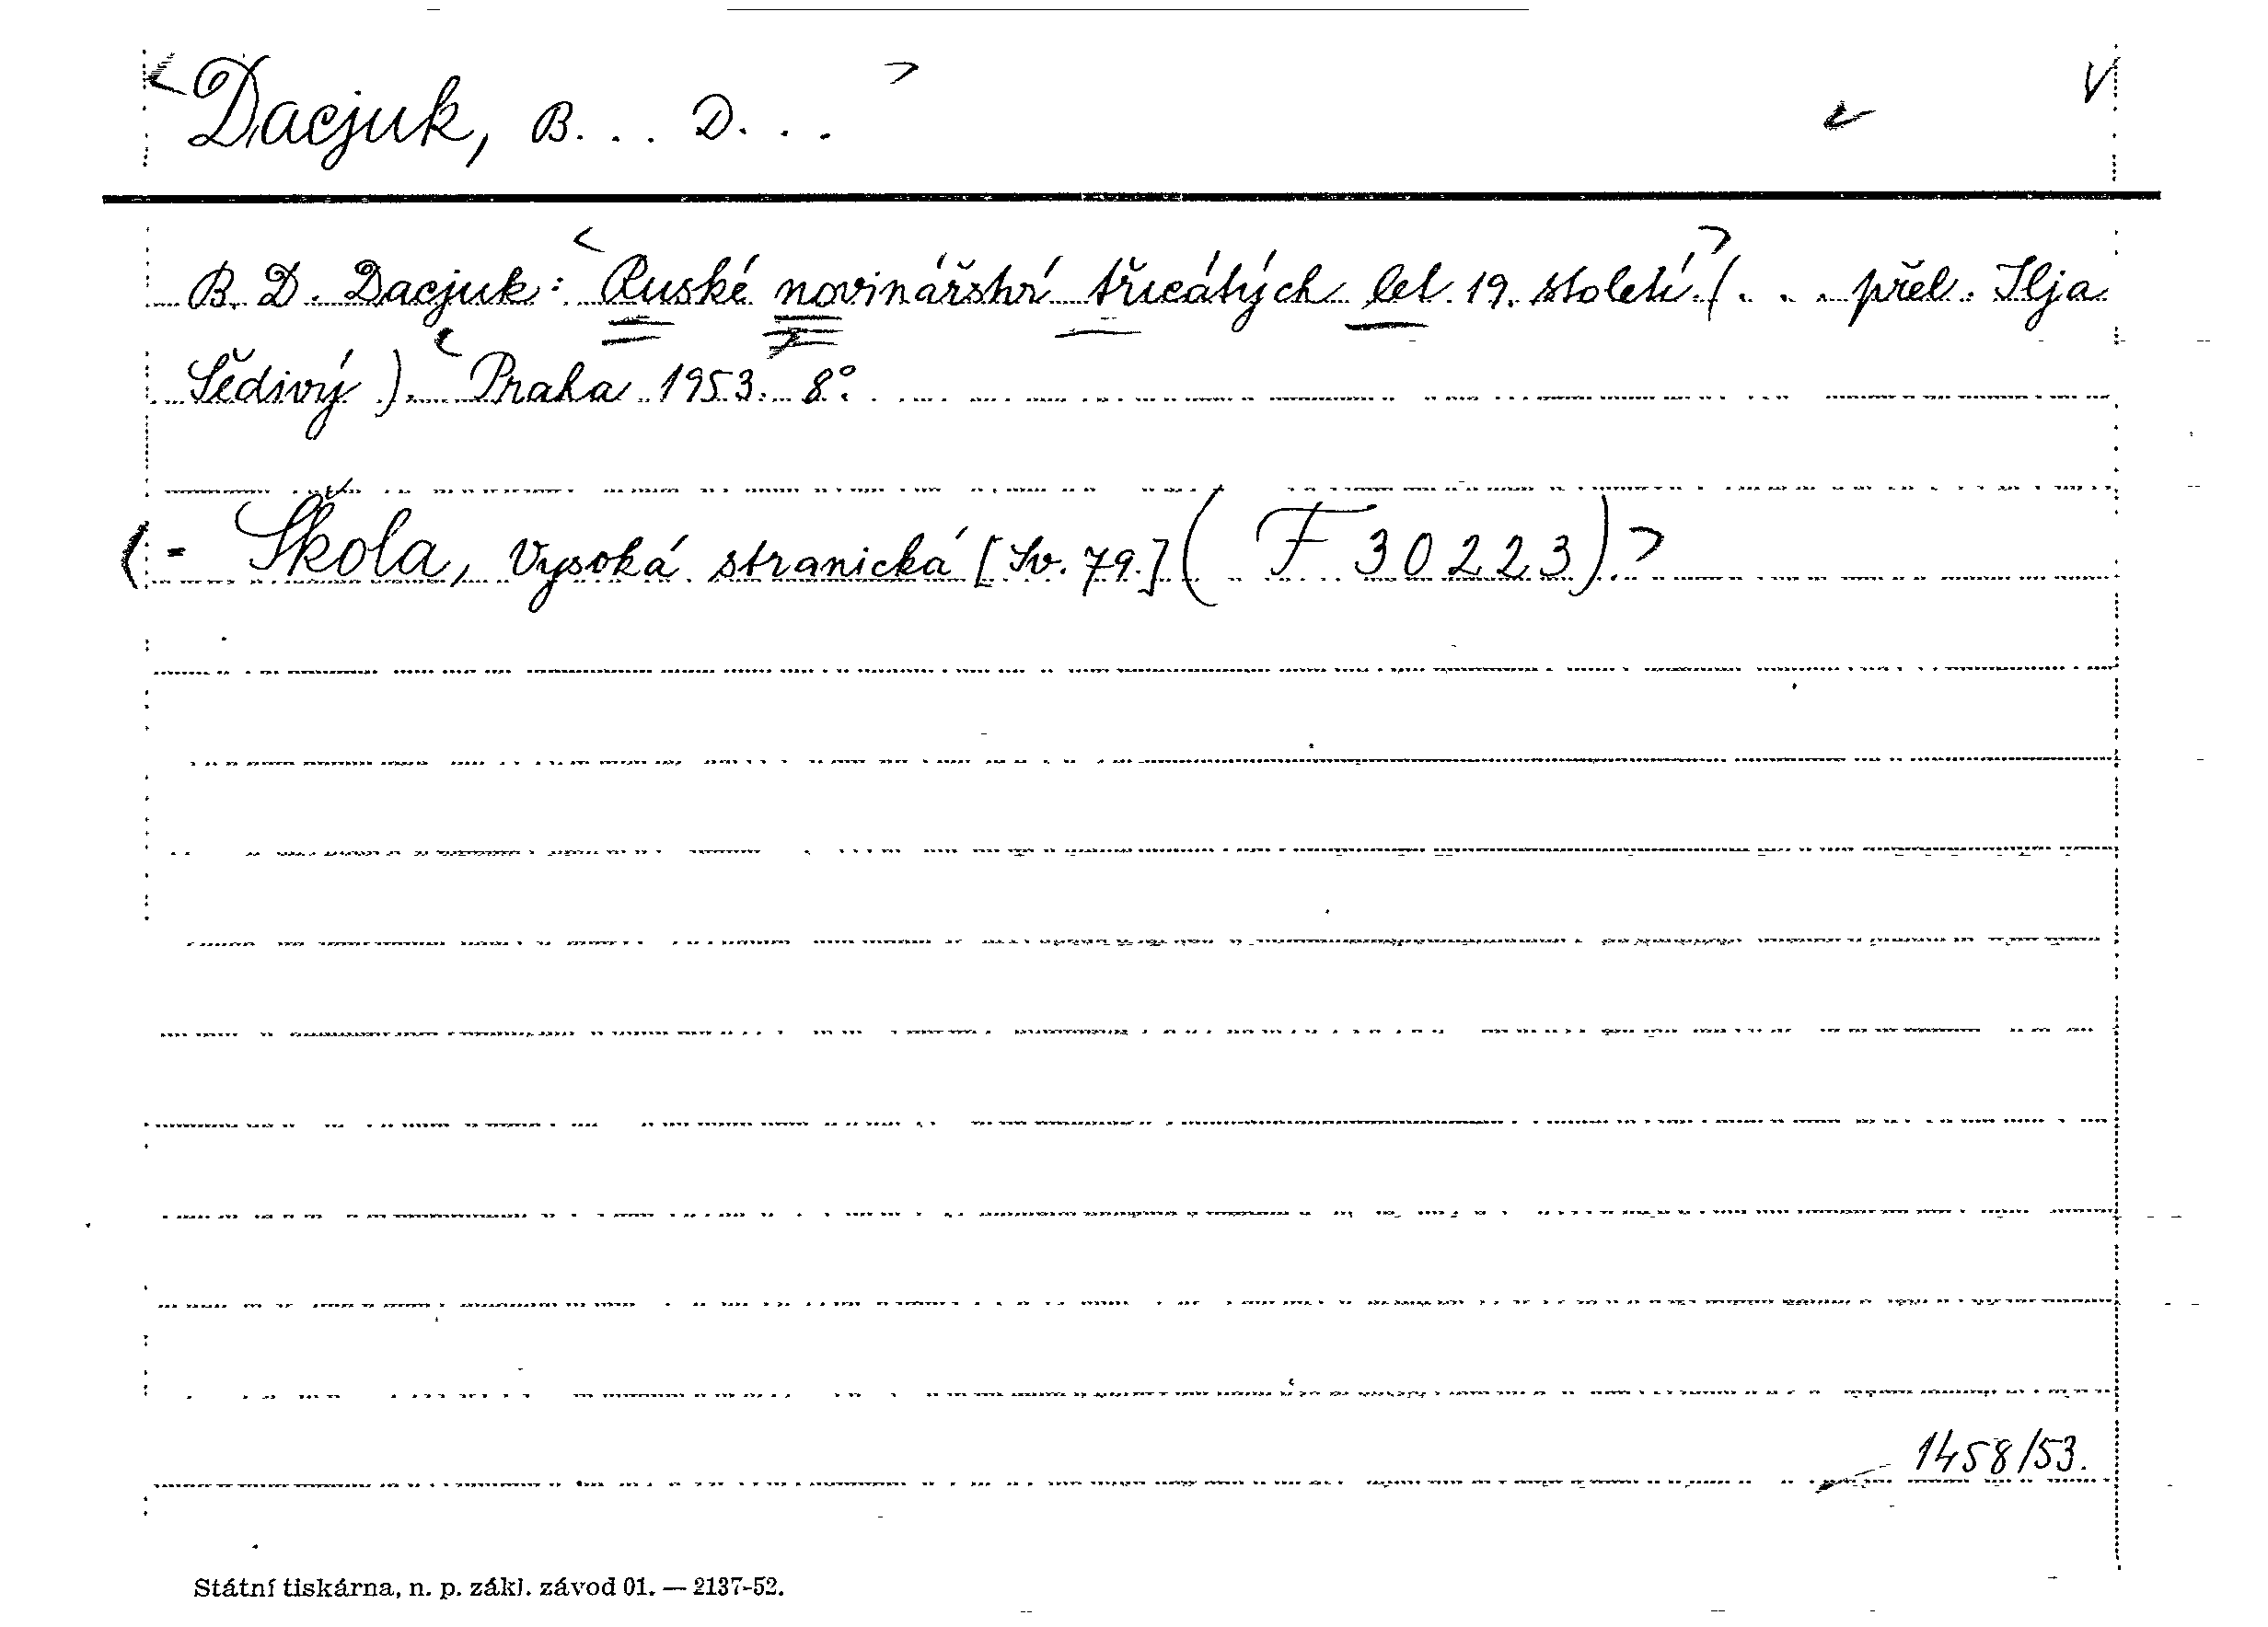 <Dacjuk, B... D...>
B. D. Dacjuk: <Ruské novinářství třicátých let 19. století> (... přel. Ilja
Šedivý). <Praha 1953. 8°.
(- Škola, Vysoká stranická [Sv. 79.] (F 30223).>
1458/53.
Státní tiskárna, n. p. zákl. závod 01. — 2137-52.